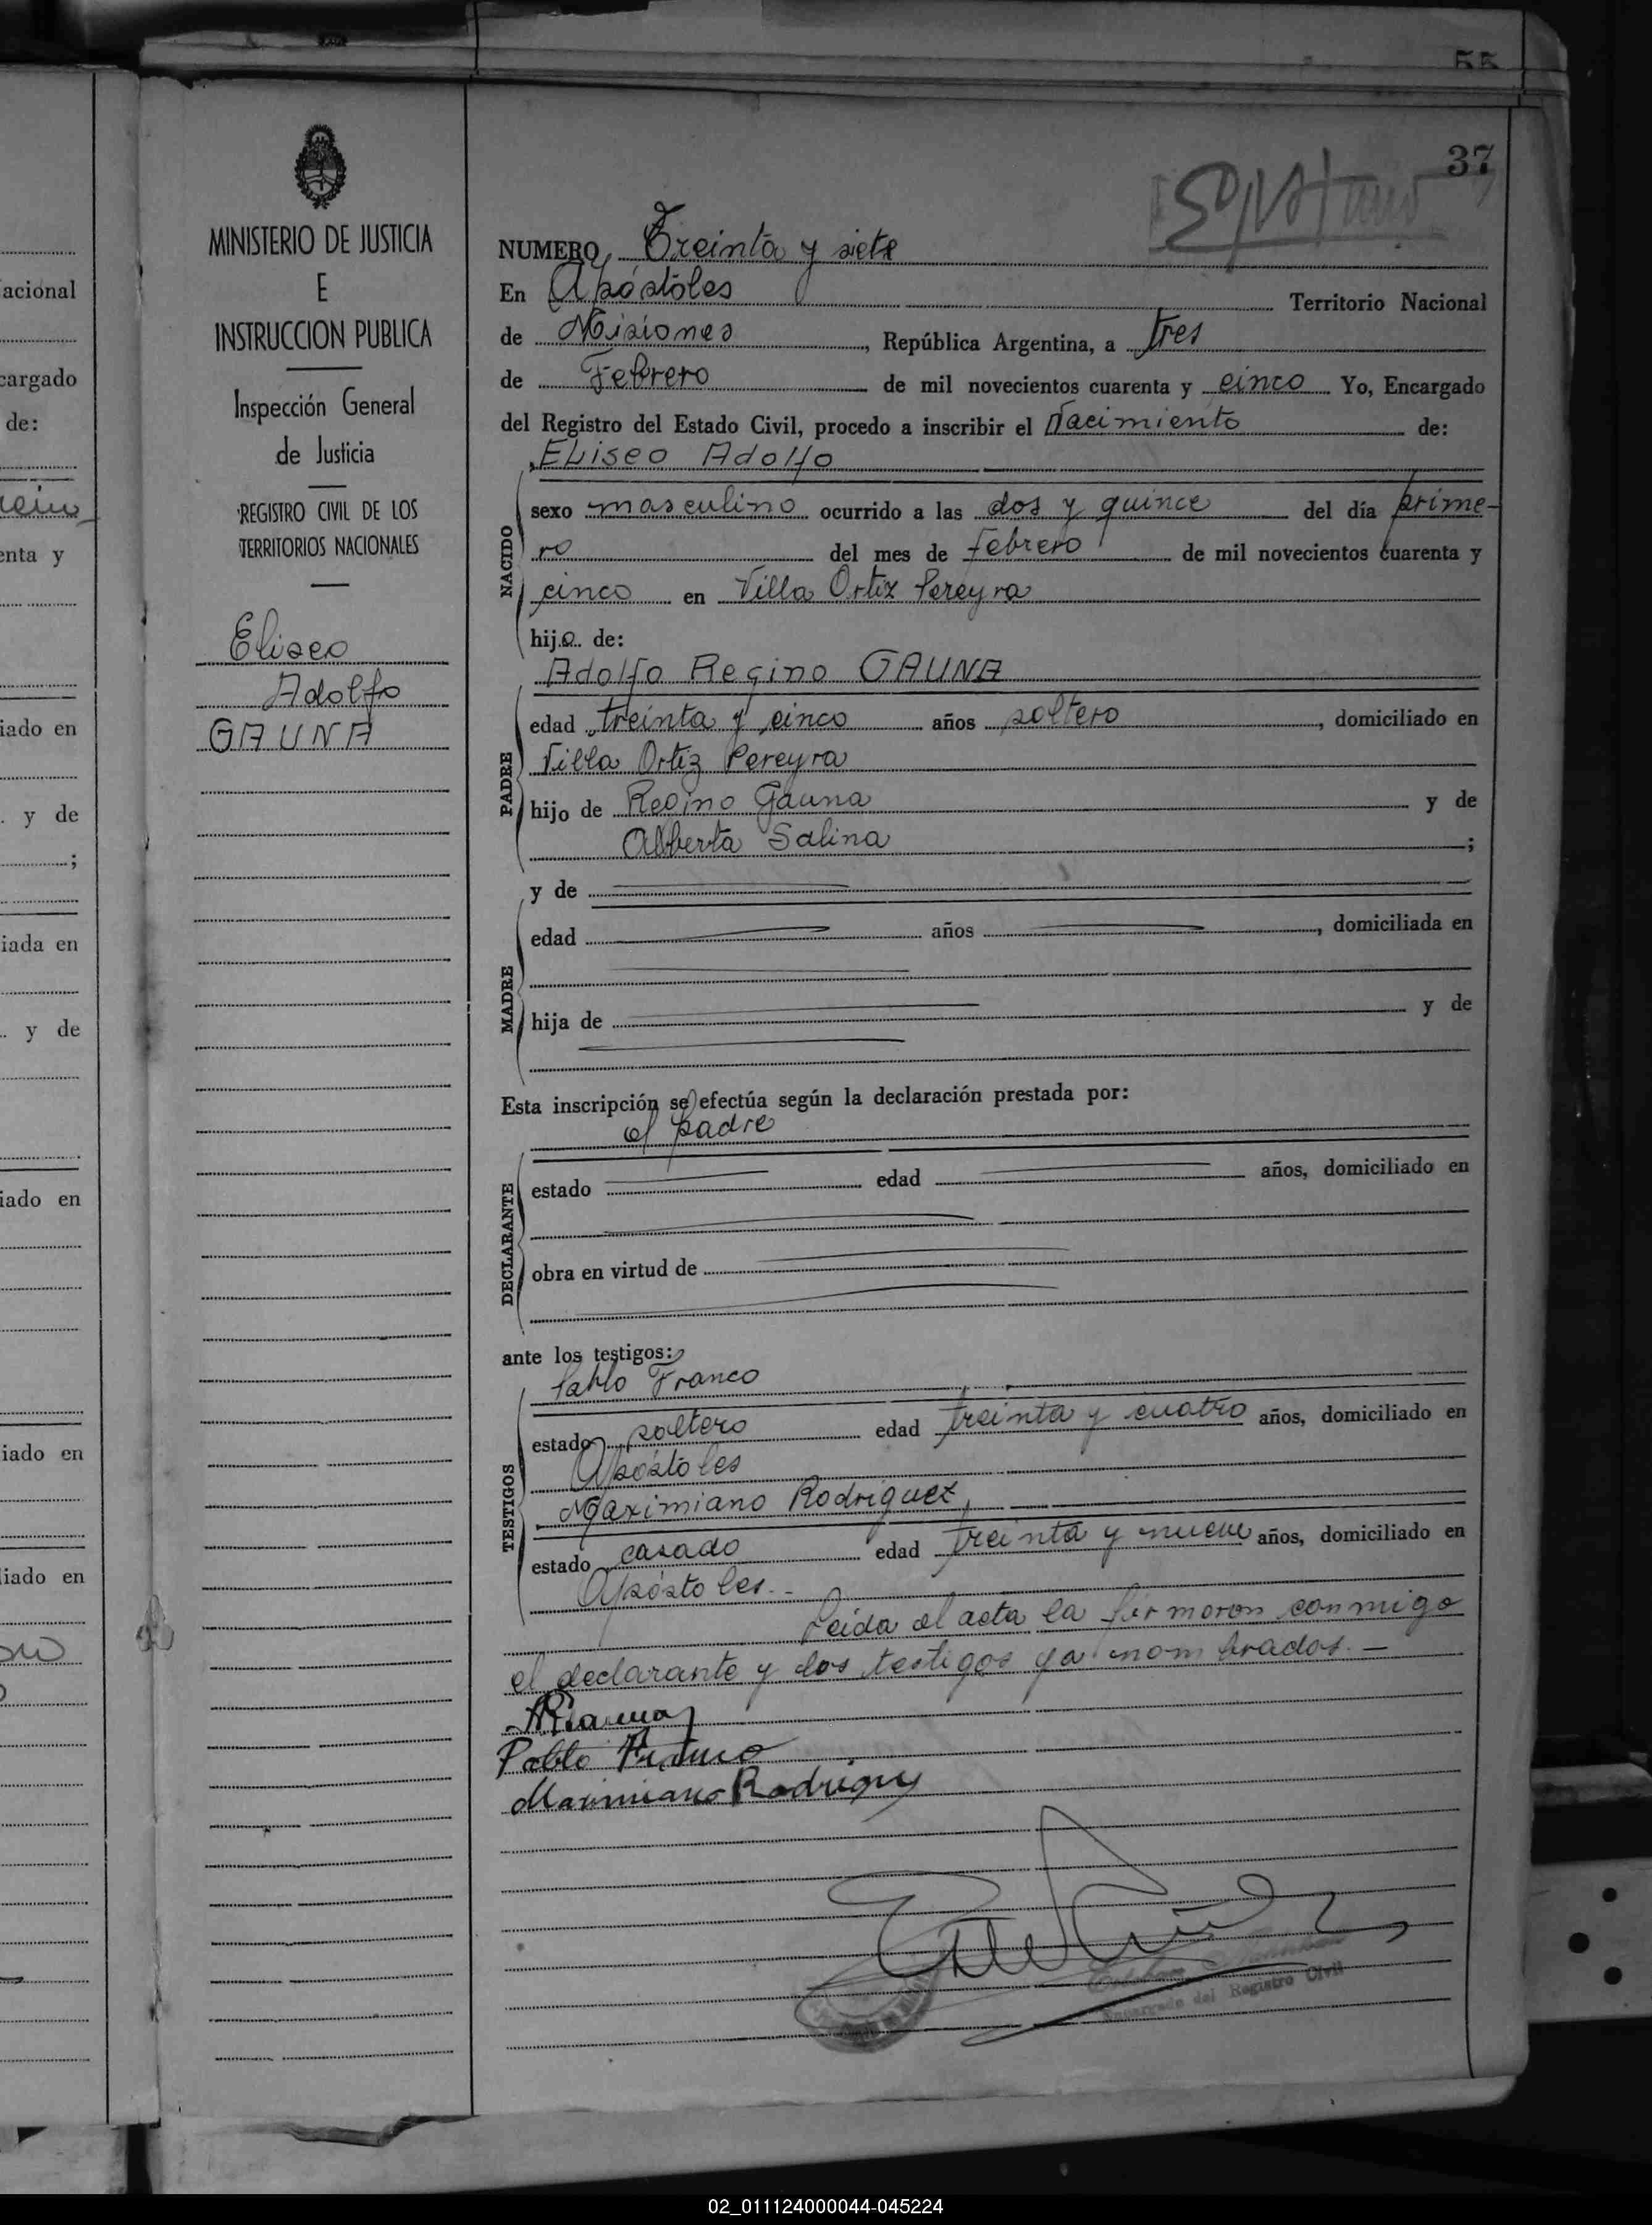 55
37
MINISTERIO DE JUSTICIA
E
INSTRUCCION PUBLICA
Inspección General
de Justicia
REGISTRO CIVIL DE LOS
TERRITORIOS NACIONALES
Eliseo
Adolfo
GAUNA
NUMERO Treinta y siete
En Apóstoles Territorio Nacional
de Misiones, República Argentina, a tres
de Febrero de mil novecientos cuarenta y cinco Yo, Encargado
del Registro del Estado Civil, procedo a inscribir el Nacimiento de:
Eliseo Adolfo
NACIDO
sexo masculino ocurrido a las dos y quince del día prime-
ro del mes de febrero de mil novecientos cuarenta y
cinco en Villa Ortiz Pereyra
hijo de:
Adolfo Regino GAUNA
PADRE
edad treinta y cinco años soltero, domiciliado en
Villa Ortiz Pereyra
hijo de Regino Gauna y de
Alberta Salina;
MADRE
y de
edad años, domiciliada en
hija de y de
Esta inscripción se efectúa según la declaración prestada por:
el padre
DECLARANTE
estado edad años, domiciliado en
obra en virtud de
ante los testigos:
Pablo Franco
TESTIGOS
estado soltero edad treinta y cuatro años, domiciliado en
Apóstoles
Maximiano Rodriguez,
estado casado edad treinta y nueve años, domiciliado en
Apóstoles.-
Leida el acta la firmaron conmigo
el declarante y los testigos ya nombrados.—
Pablo Franco
Maximiano Rodriguez
Encargado del Registro Civil
acional
cargado
de:
enta y
iado en
. y de
;
iada en
. y de
iado en
iado en
liado en
02_011124000044-045224